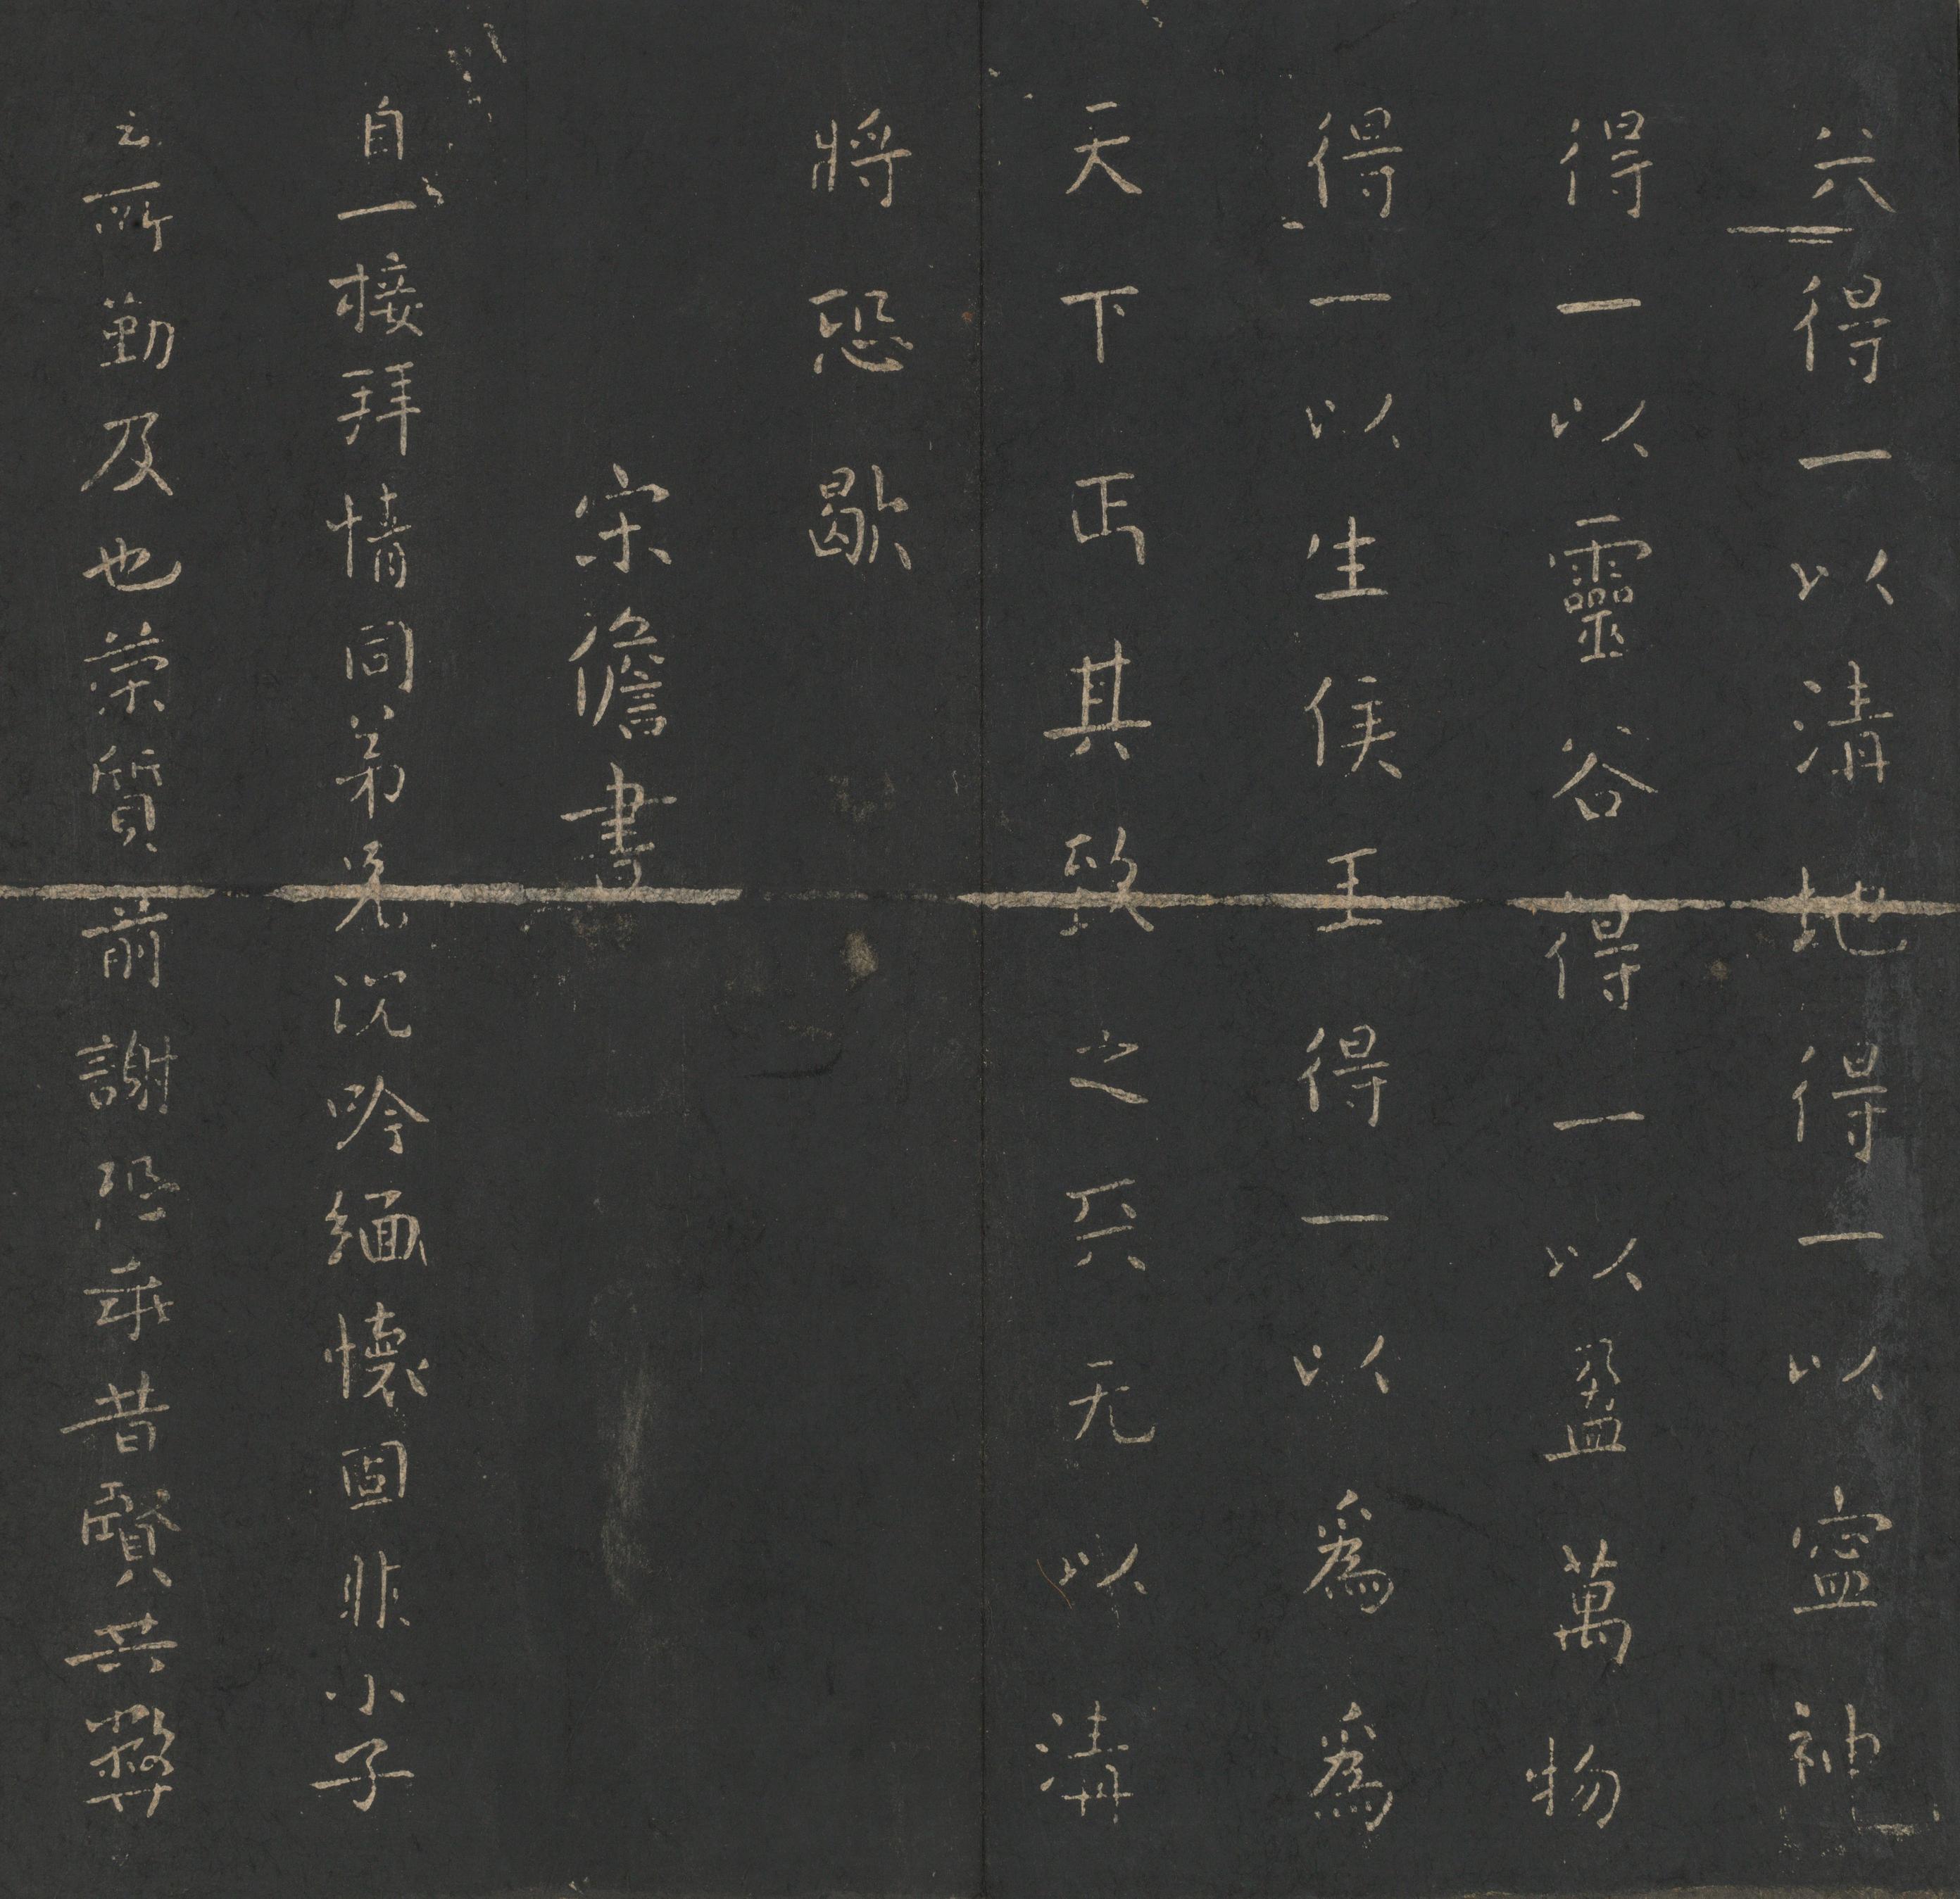 六得一以清地得一以寍神
得一以靈谷得一以盈萬物
得一以生侯王得一以爲爲
天下正其致之天无以清
將恐歇
宋儋書
自一接拜情同弟兄沉吟緬懷固非小子
云所勤及也榮質前謝恐乖昔賢共弊